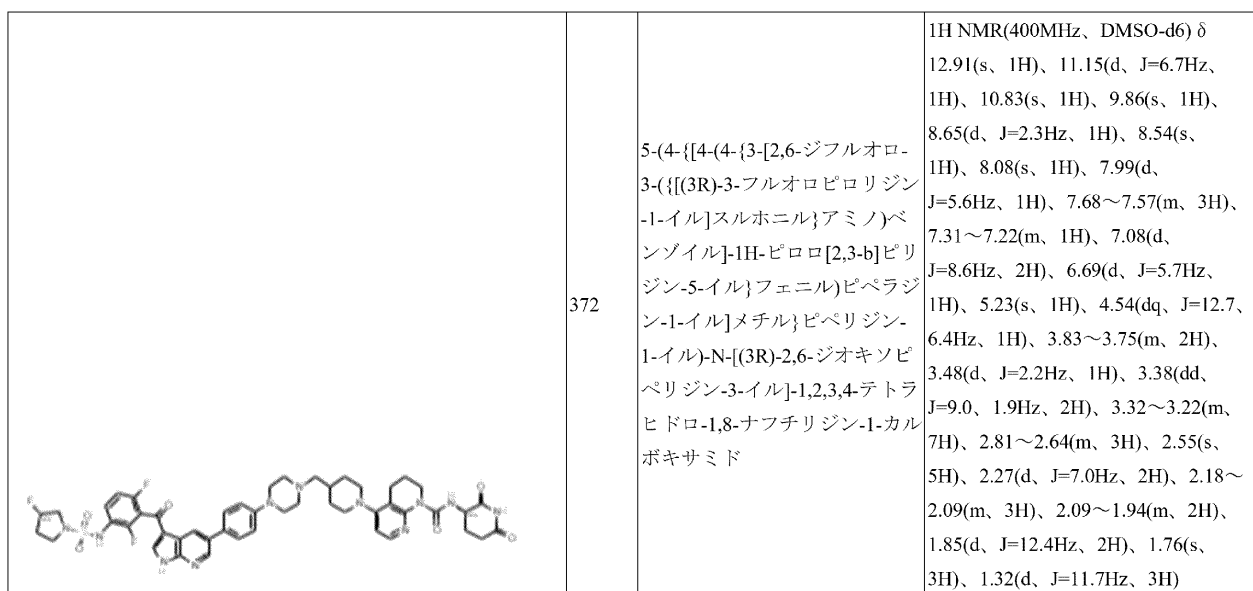 372
5-(4-{[4-(4-{3-[2,6-ジフルオロ-
3-({[(3R)-3-フルオロピロリジン
-1-イル]スルホニル}アミノ)ベ
ンゾイル]-1H-ピロロ[2,3-b]ピリ
ジン-5-イル}フェニル)ピペラジ
ン-1-イル]メチル}ピペリジン-
1-イル)-N-[(3R)-2,6-ジオキソピ
ペリジン-3-イル]-1,2,3,4-テトラ
ヒドロ-1,8-ナフチリジン-1-カル
ボキサミド
1H NMR(400MHz、DMSO-d6) δ
12.91(s、1H)、11.15(d、J=6.7Hz、
1H)、10.83(s、1H)、9.86(s、1H)、
8.65(d、J=2.3Hz、1H)、8.54(s、
1H)、8.08(s、1H)、7.99(d、
J=5.6Hz、1H)、7.68～7.57(m、3H)、
7.31～7.22(m、1H)、7.08(d、
J=8.6Hz、2H)、6.69(d、J=5.7Hz、
1H)、5.23(s、1H)、4.54(dq、J=12.7、
6.4Hz、1H)、3.83～3.75(m、2H)、
3.48(d、J=2.2Hz、1H)、3.38(dd、
J=9.0、1.9Hz、2H)、3.32～3.22(m、
7H)、2.81～2.64(m、3H)、2.55(s、
5H)、2.27(d、J=7.0Hz、2H)、2.18～
2.09(m、3H)、2.09～1.94(m、2H)、
1.85(d、J=12.4Hz、2H)、1.76(s、
3H)、1.32(d、J=11.7Hz、3H)